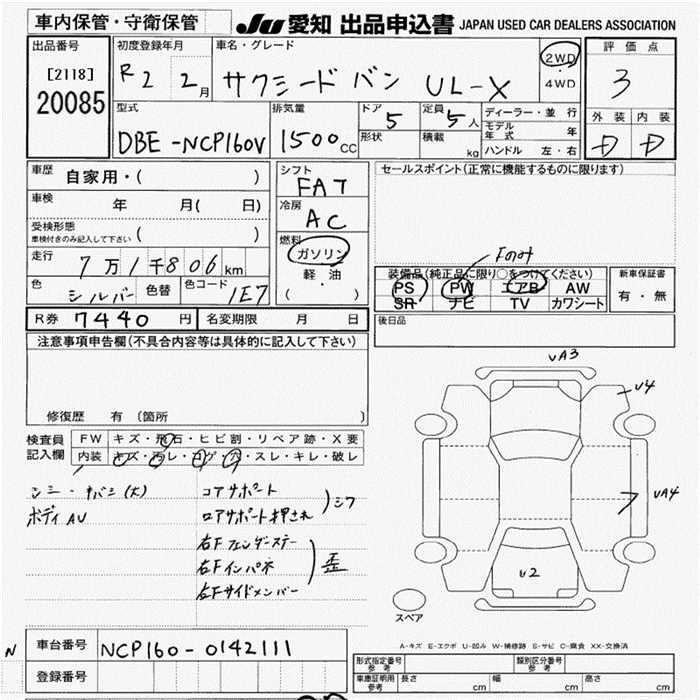 車内保管・守衛保管
JU 愛知 出品申込書 JAPAN USED CAR DEALERS ASSOCIATION
出品番号
[2118]
20085
初度登録年月
R2 2月
車名・グレード
サクシードバン UL-X
2WD
・
4WD
評価点
3
外装 内装
D D
型式
DBE-NCP160V
排気量
1500cc
ドア
5
形状
定員
5人
積載
kg
ディーラー・並行
モデル年式 年
ハンドル 左・右
車歴 自家用・( )
車検 年 月( 日)
受検形態
車検付きのみ記入して下さい ( )
走行 7万1千806km
色 シルバー 色替 色コード 1E7
シフト
FAT
冷房
AC
燃料
ガソリン
軽・油
( ・ )
セールスポイント(正常に機能するものに限ります)
Fのみ
装備品(純正品に限り○をつけてください)
PS PW エアB AW
SR ナビ TV カワシート
新車保証書
有・無
R券 7440円 名変期限 月 日
後日品
注意事項申告欄(不具合内容等は具体的に記入して下さい)
修復歴 有 〔箇所 〕
検査員記入欄
FW キズ・飛石・ヒビ割・リペア跡・X変
内装 キズ・汚レ・コゲ・穴・スレ・キレ・破レ
シミ・キバミ(大)
ボディAU
コアサポート
ロアサポート押され
)シワ
右Fフェンダーステー
右Fインパネ
右Fサイドメンバー
)歪
UA3
U4
UA4
U2
スペア
A-キズ E-エクボ U-凹み W-補修跡 S-サビ C-腐食 XX-交換済
N
車台番号 NCP160-0142111
登録番号
形式指定番号 参考
類別区分番号 参考
車庫証明用 参考 長さ cm 幅 cm 高さ cm